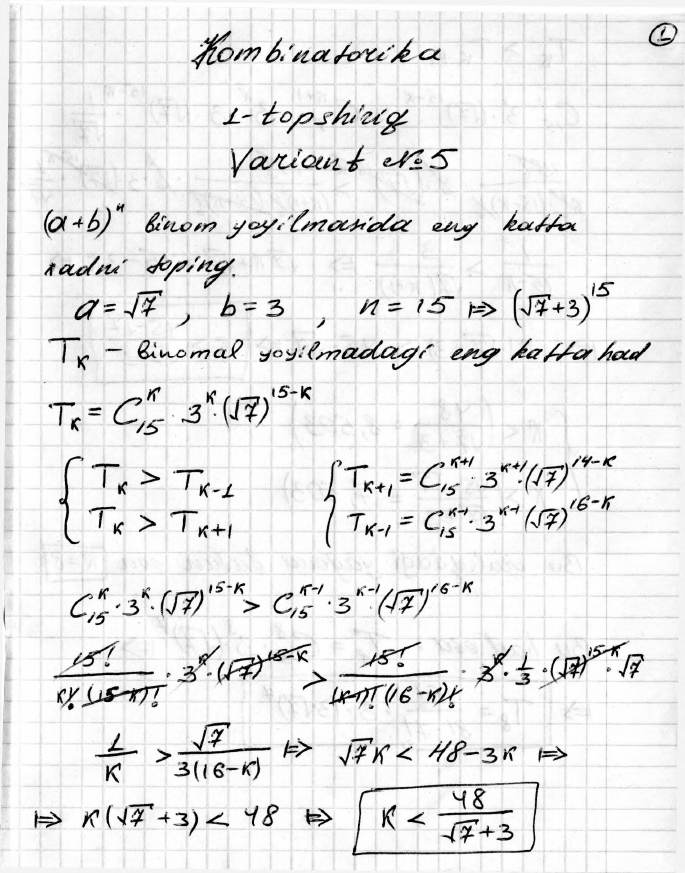 ①
Kombinatorika
1-topshiriq
Variant №5
(a+b)ⁿ binom yoyilmasida eng katta
xadni toping.
a = √7 , b = 3 , n = 15 ⇒ (√7+3)¹⁵
T_K – Binomal yoyilmadagi eng katta had
T_K = C₁₅^K · 3^K · (√7)^(15-K)
{ T_K > T_(K-1)   { T_(K+1) = C₁₅^(K+1) · 3^(K+1) · (√7)^(14-K)
T_K > T_(K+1)   T_(K-1) = C₁₅^(K-1) · 3^(K-1) · (√7)^(16-K)
C₁₅^K · 3^K · (√7)^(15-K) > C₁₅^(K-1) · 3^(K-1) · (√7)^(16-K)
15!/(K!·(15-K)!) · 3^K · (√7)^(15-K) > 15!/((K-1)!·(16-K)!) · 3^K · 1/3 · (√7)^(15-K) · √7
1/K > √7/(3(16-K)) ⇒ √7K < 48-3K ⇒
⇒ K(√7+3) < 48 ⇒ K < 48/(√7+3)